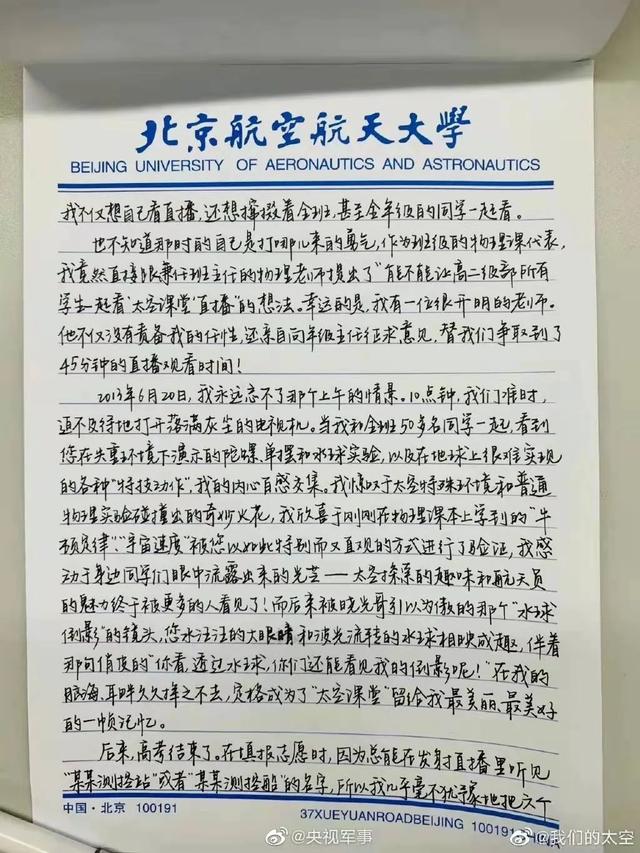 北京航空航天大学
BEIJING UNIVERSITY OF AERONAUTICS AND ASTRONAUTICS
我不仅想自己看直播,还想撺掇着全班,甚至全年级的同学一起看。
也不知道那时的自己是打哪儿来的勇气,作为班级的物理课代表,
我竟然直接跟兼任班主任的物理老师提出了“能不能让高二级部所有
学生一起看‘太空课堂’直播”的想法。幸运的是,我有一位很开明的老师。
他不仅没有责备我的任性,还亲自向年级主任征求意见,替我们争取到了
45分钟的直播观看时间!
2013年6月20日,我永远忘不了那个上午的情景。10点钟,我们准时、
迫不及待地打开落满灰尘的电视机。当我和全班50多名同学一起,看到
您在失重环境下演示的陀螺、单摆和水球实验,以及在地球上很难实现
的各种“特技动作”,我的内心百感交集。我惊叹于太空特殊环境和普通
物理实验碰撞出的奇妙火花,我欣喜于刚刚在物理课本上学到的“牛
顿定律”、“宇宙速度”被您以如此特别而又直观的方式进行了验证,我感
动于身边同学们眼中流露出来的光芒——太空探索的趣味和航天员
的魅力终于被更多的人看见了!而后来被晓光哥引以为傲的那个“水球
倒影”的镜头,您水汪汪的大眼睛和波光流转的水球相映成趣,伴着
那句俏皮的“你看,透过水球,你们还能看见我的倒影呢!”在我的
脑海、耳畔久久挥之不去,定格成为了“太空课堂”留给我最美丽、最美好
的一帧记忆。
后来,高考结束了。在填报志愿时,因为总能在发射直播里听见
“某某测控站”或者“某某测控船”的名字,所以我几乎毫不犹豫地把六个
中国·北京 100191
37XUEYUANROADBEIJING 100191
@央视军事
@我们的太空